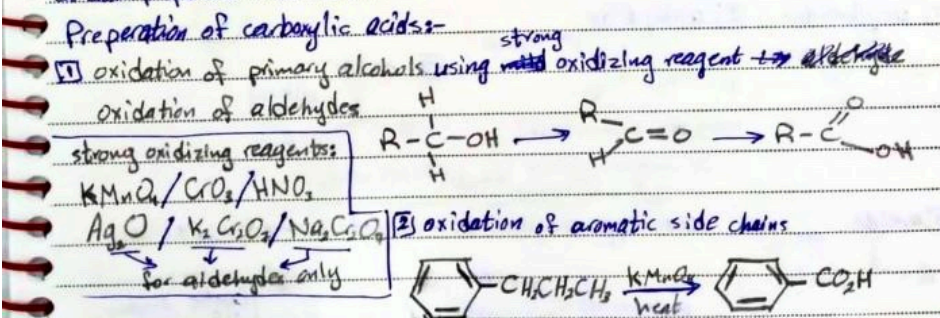 Preperation of carboxylic acids:-
[1] oxidation of primary alcohols using strong oxidizing reagent
oxidation of aldehydes
H
R-C-OH → R C=O → R-C O
H H OH
strong oxidizing reagents:
KMnO4/CrO3/HNO3
Ag2O / K2Cr2O7/Na2Cr2O7
for aldehydes only
[2] oxidation of aromatic side chains
CH2CH2CH3 KMnO4 CO2H
heat